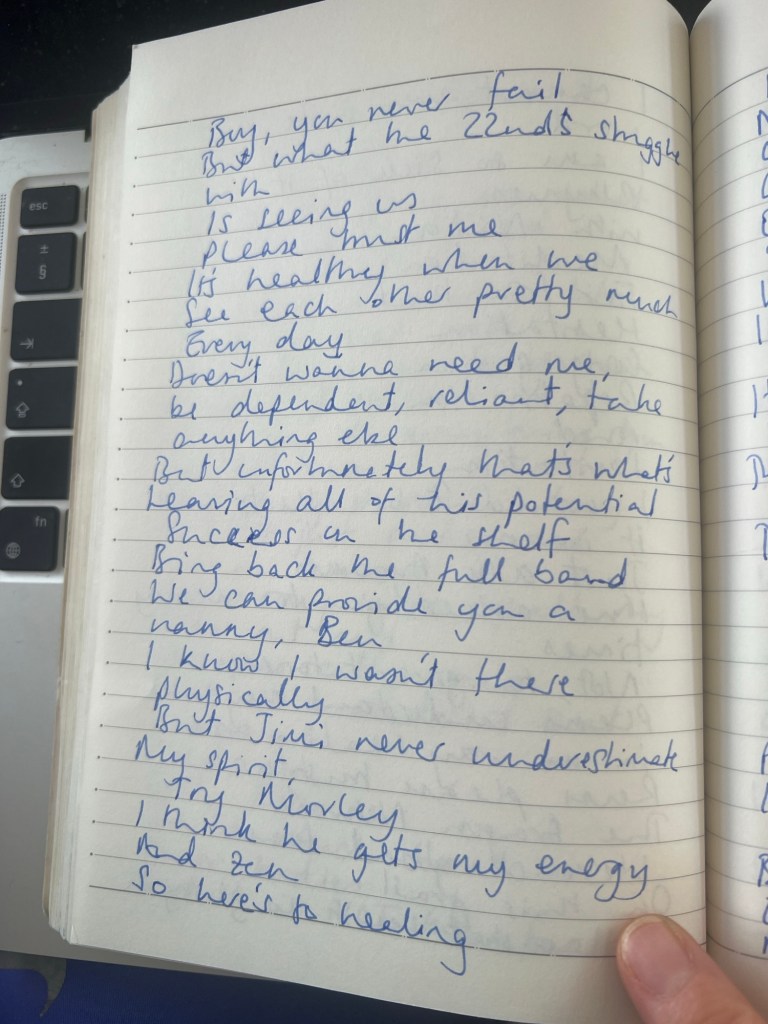 Boy, you never fail
But what the 22nds struggle
with
Is seeing us
please trust me
It's healthy when we
See each other pretty much
Every day
Doesn't wanna need me,
be dependent, reliant, take
anything else
But unfortunately that's what's
Leaving all of his potential
Success on the shelf
Bring back the full band
We can provide you a
nanny, Ben
I know I wasn't there
physically
But Jimi never underestimate
My spirit,
Try Morley
I think he gets my energy
And zen
So here's to healing
esc
±
§
fn